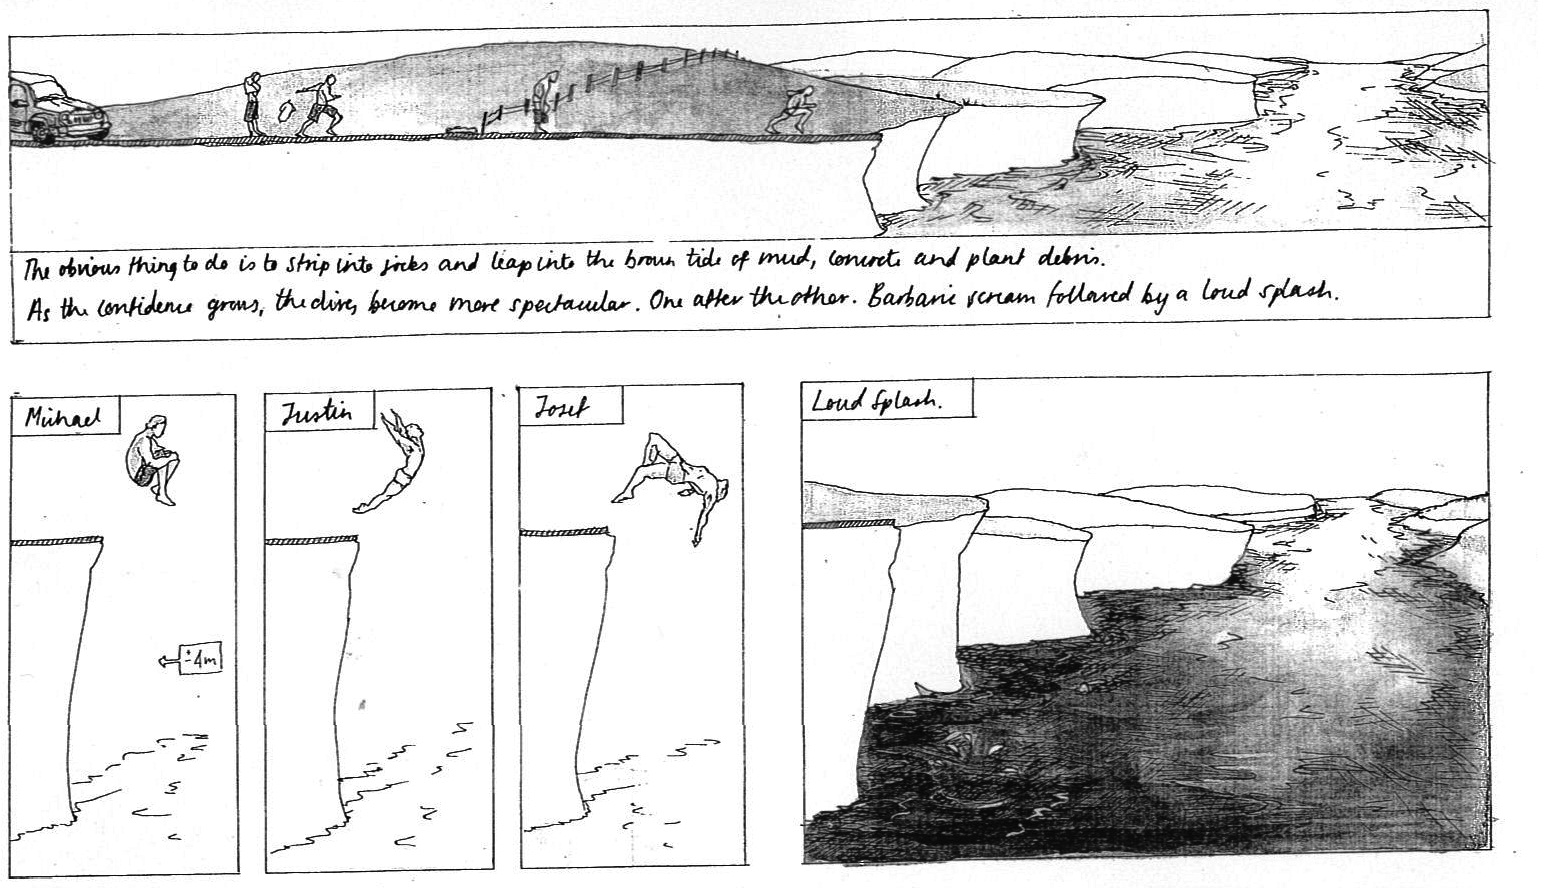 The obvious thing to do is to strip into jocks and leap into the brown tide of mud, concrete and plant debris.
As the confidence grows, the dives become more spectacular. One after the other. Barbaric scream followed by a loud splash.
Michael
Justin
Josef
Loud Splash.
±4m